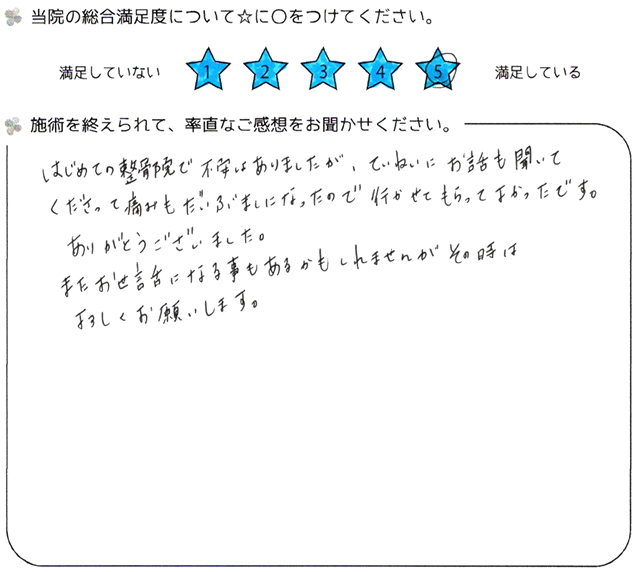 当院の総合満足度について☆に〇をつけてください。
満足していない 1 2 3 4 5 満足している
施術を終えられて、率直なご感想をお聞かせください。
はじめての整骨院で不安はありましたが、ていねいにお話も聞いて
くださって痛みもだいぶましになったので行かせてもらってよかったです。
ありがとうございました。
またお世話になる事もあるかもしれませんがその時は
よろしくお願いします。